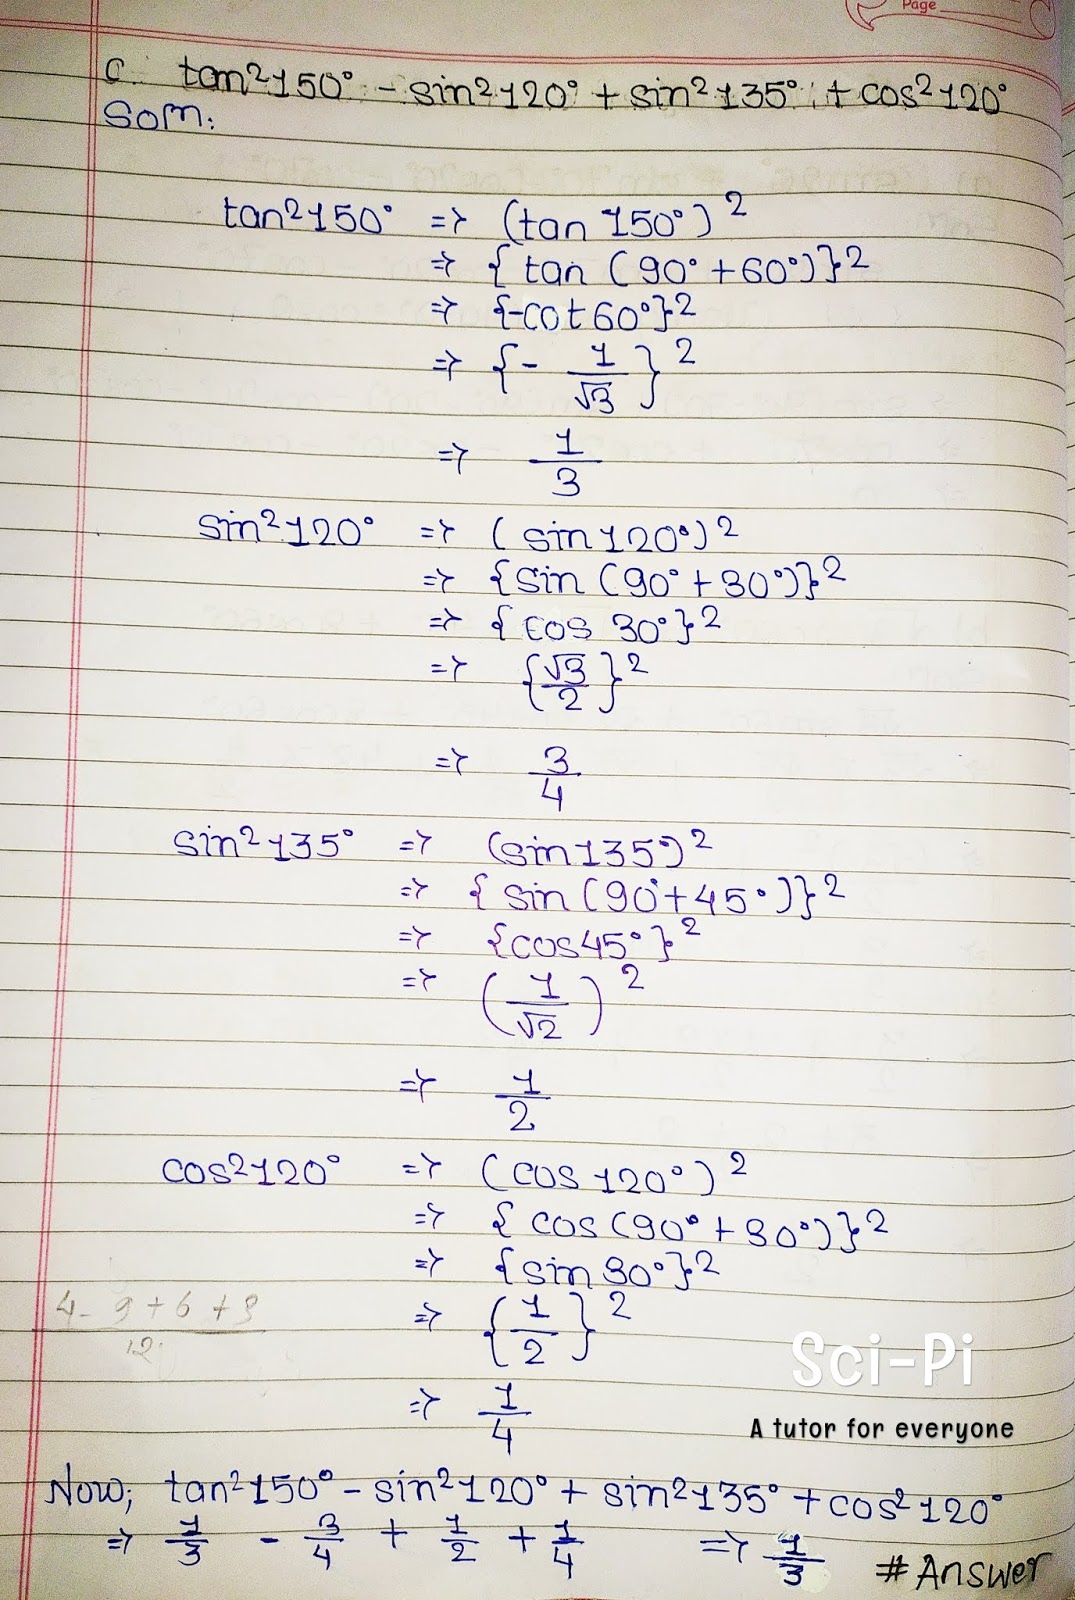 Page
c. tan²150° - sin²120° + sin²135° + cos²120°
Soln:
tan²150° => (tan 150°)²
=> {tan (90° + 60°)}²
=> {-cot 60°}²
=> {- 1/√3}²
=> 1/3
sin²120° => (sin 120°)²
=> {sin (90° + 30°)}²
=> {cos 30°}²
=> {√3/2}²
=> 3/4
sin²135° => (sin 135°)²
=> {sin (90° + 45°)}²
=> {cos 45°}²
=> (1/√2)²
=> 1/2
cos²120° => (cos 120°)²
=> {cos (90° + 30°)}²
=> {sin 30°}²
4 - 9 + 6 + 3
12
=> {1/2}²
=> 1/4
Sci-Pi
A tutor for everyone
Now, tan²150° - sin²120° + sin²135° + cos²120°
=> 1/3 - 3/4 + 1/2 + 1/4 => 1/3 # Answer